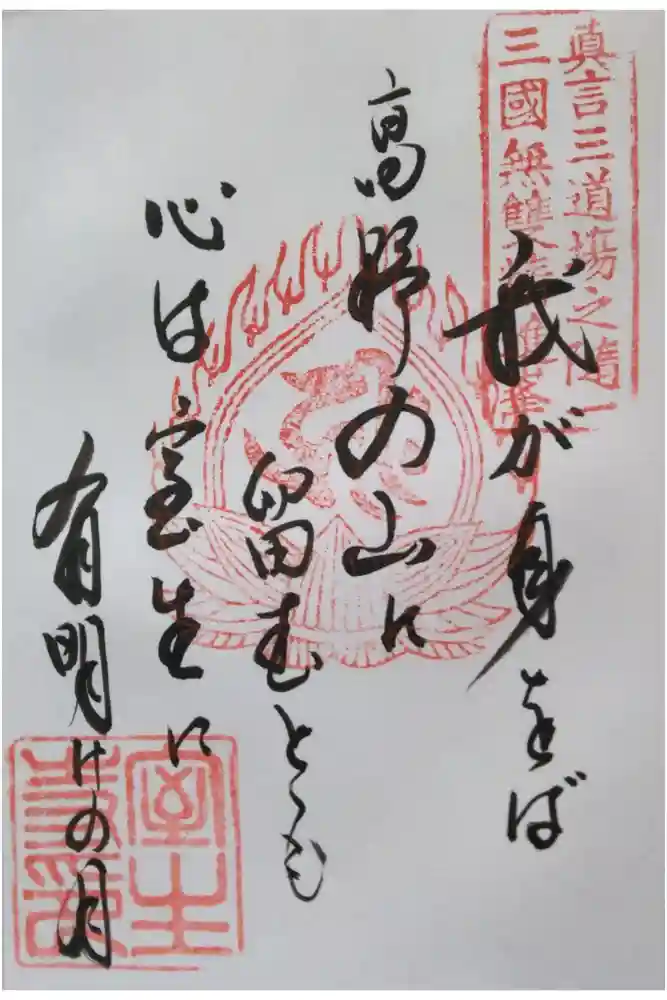 眞言三道場之隨一
三國無雙
我が身をば
高野の山に
留むとも
心は室生に
有明けの月
室生